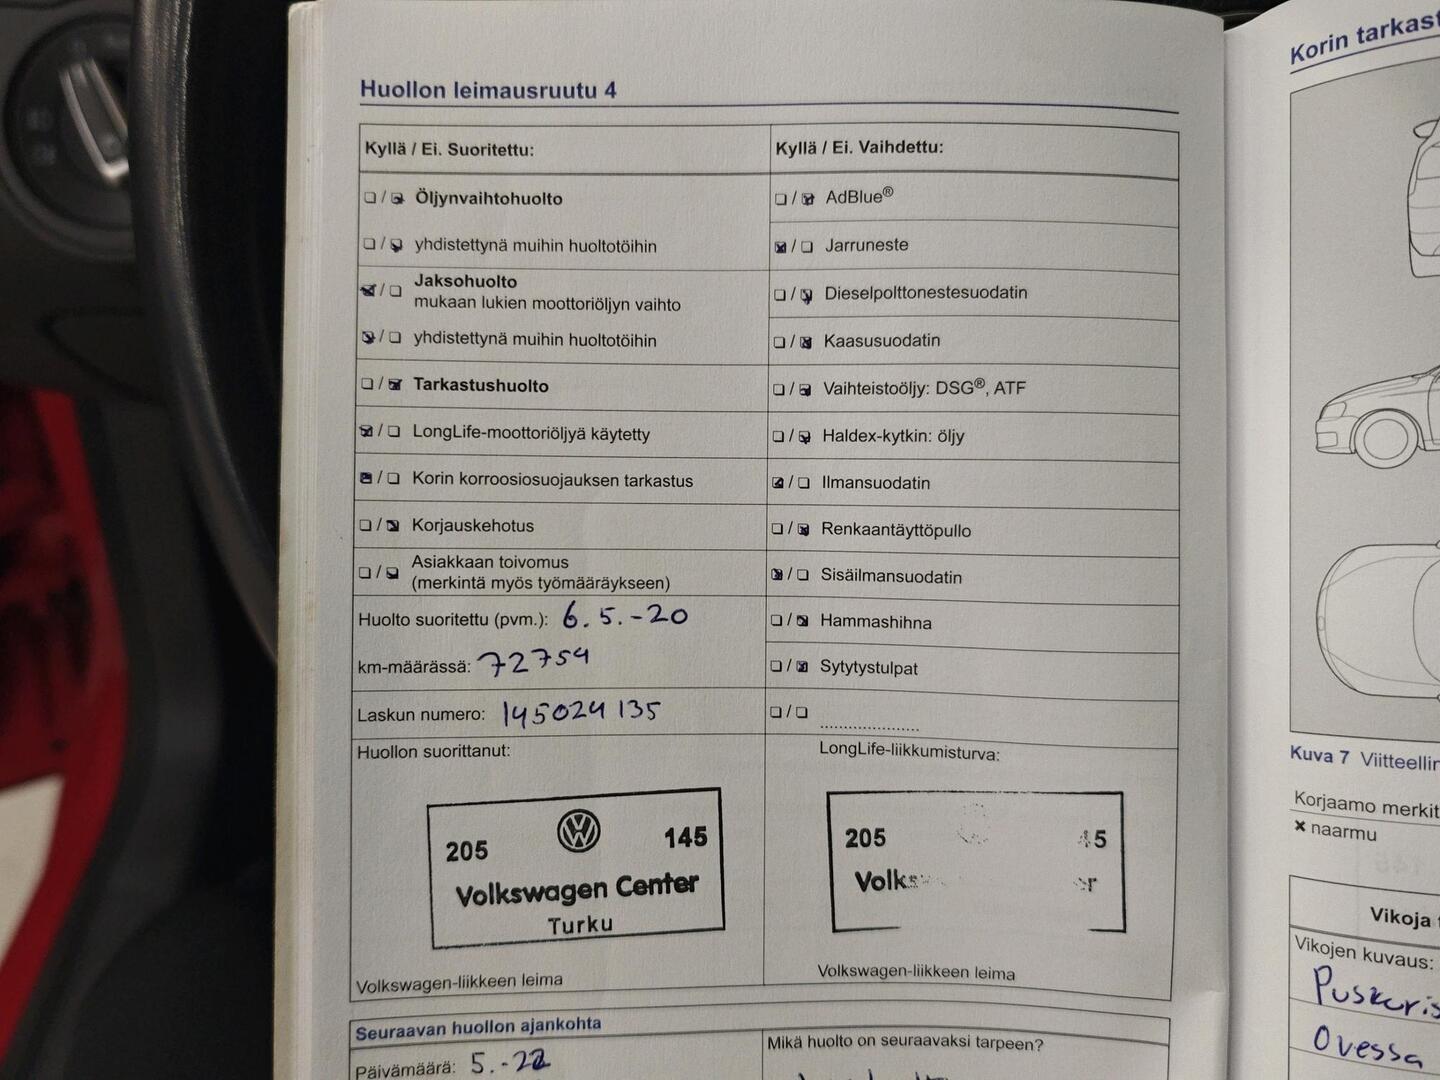 Huollon leimausruutu 4
Kyllä / Ei. Suoritettu:
☐ / ☒ Öljynvaihtohuolto
☐ / ☒ yhdistettynä muihin huoltotöihin
☒ / ☐ Jaksohuolto
mukaan lukien moottoriöljyn vaihto
☒ / ☐ yhdistettynä muihin huoltotöihin
☐ / ☒ Tarkastushuolto
☒ / ☐ LongLife-moottoriöljyä käytetty
☒ / ☐ Korin korroosiosuojauksen tarkastus
☐ / ☒ Korjauskehotus
☐ / ☒ Asiakkaan toivomus
(merkintä myös työmääräykseen)
Huolto suoritettu (pvm.): 6.5.-20
km-määrässä: 72759
Laskun numero: 145024135
Huollon suorittanut:
205 VW 145
Volkswagen Center
Turku
Volkswagen-liikkeen leima
Kyllä / Ei. Vaihdettu:
☐ / ☒ AdBlue®
☒ / ☐ Jarruneste
☐ / ☒ Dieselpolttonestesuodatin
☐ / ☒ Kaasusuodatin
☐ / ☒ Vaihteistoöljy: DSG®, ATF
☐ / ☒ Haldex-kytkin: öljy
☒ / ☐ Ilmansuodatin
☐ / ☒ Renkaantäyttöpullo
☒ / ☐ Sisäilmansuodatin
☐ / ☒ Hammashihna
☐ / ☒ Sytytystulpat
☐ / ☐ ....................
LongLife-liikkumisturva:
205 45
Volks r
Volkswagen-liikkeen leima
Seuraavan huollon ajankohta
Päivämäärä: 5.-22
Mikä huolto on seuraavaksi tarpeen?
Korin tarkast
Kuva 7 Viitteellin
Korjaamo merkit
× naarmu
Vikoja
Vikojen kuvaus:
Puskuris
Ovessa